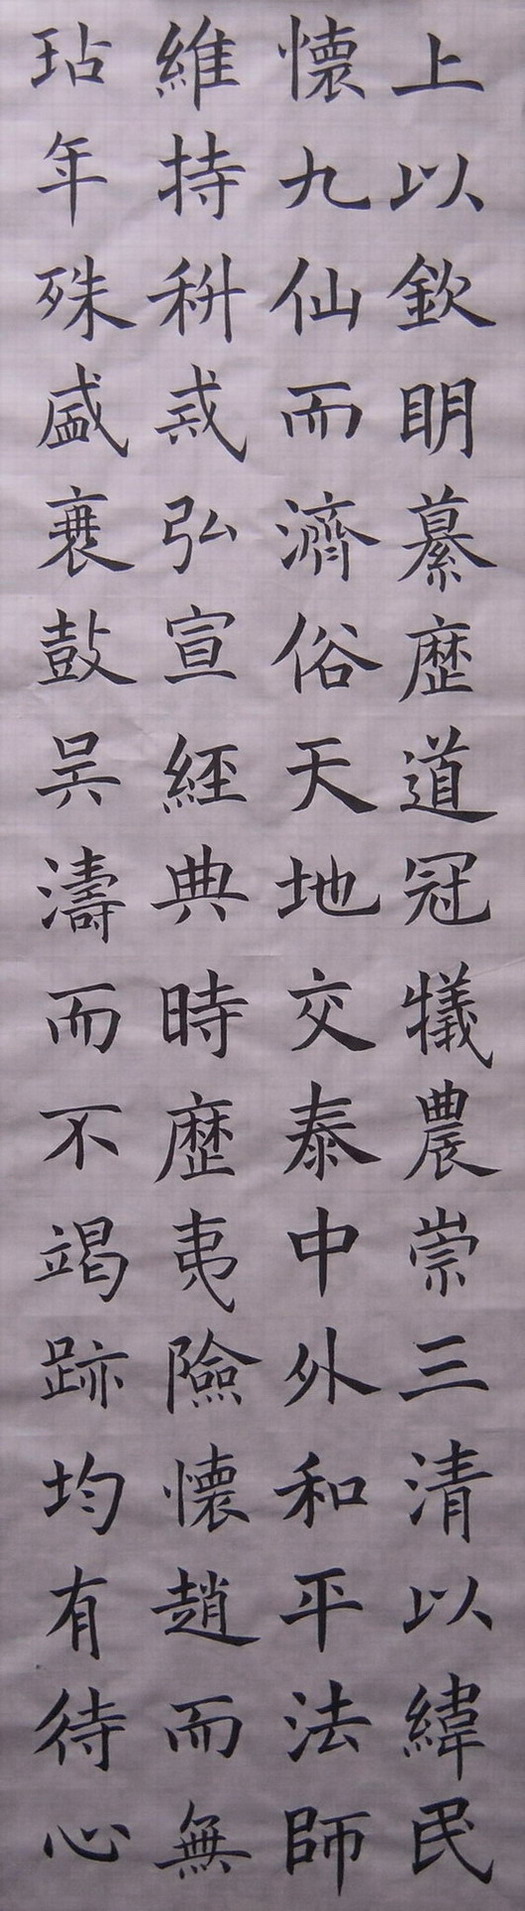 上以欽明纂歷道冠犠農崇三清以緯民
懷九仙而濟俗天地交泰中外和平法師
維持科戒弘宣經典時歷夷險懷趙而無
玷年殊盛衰鼓吳濤而不竭跡均有待心